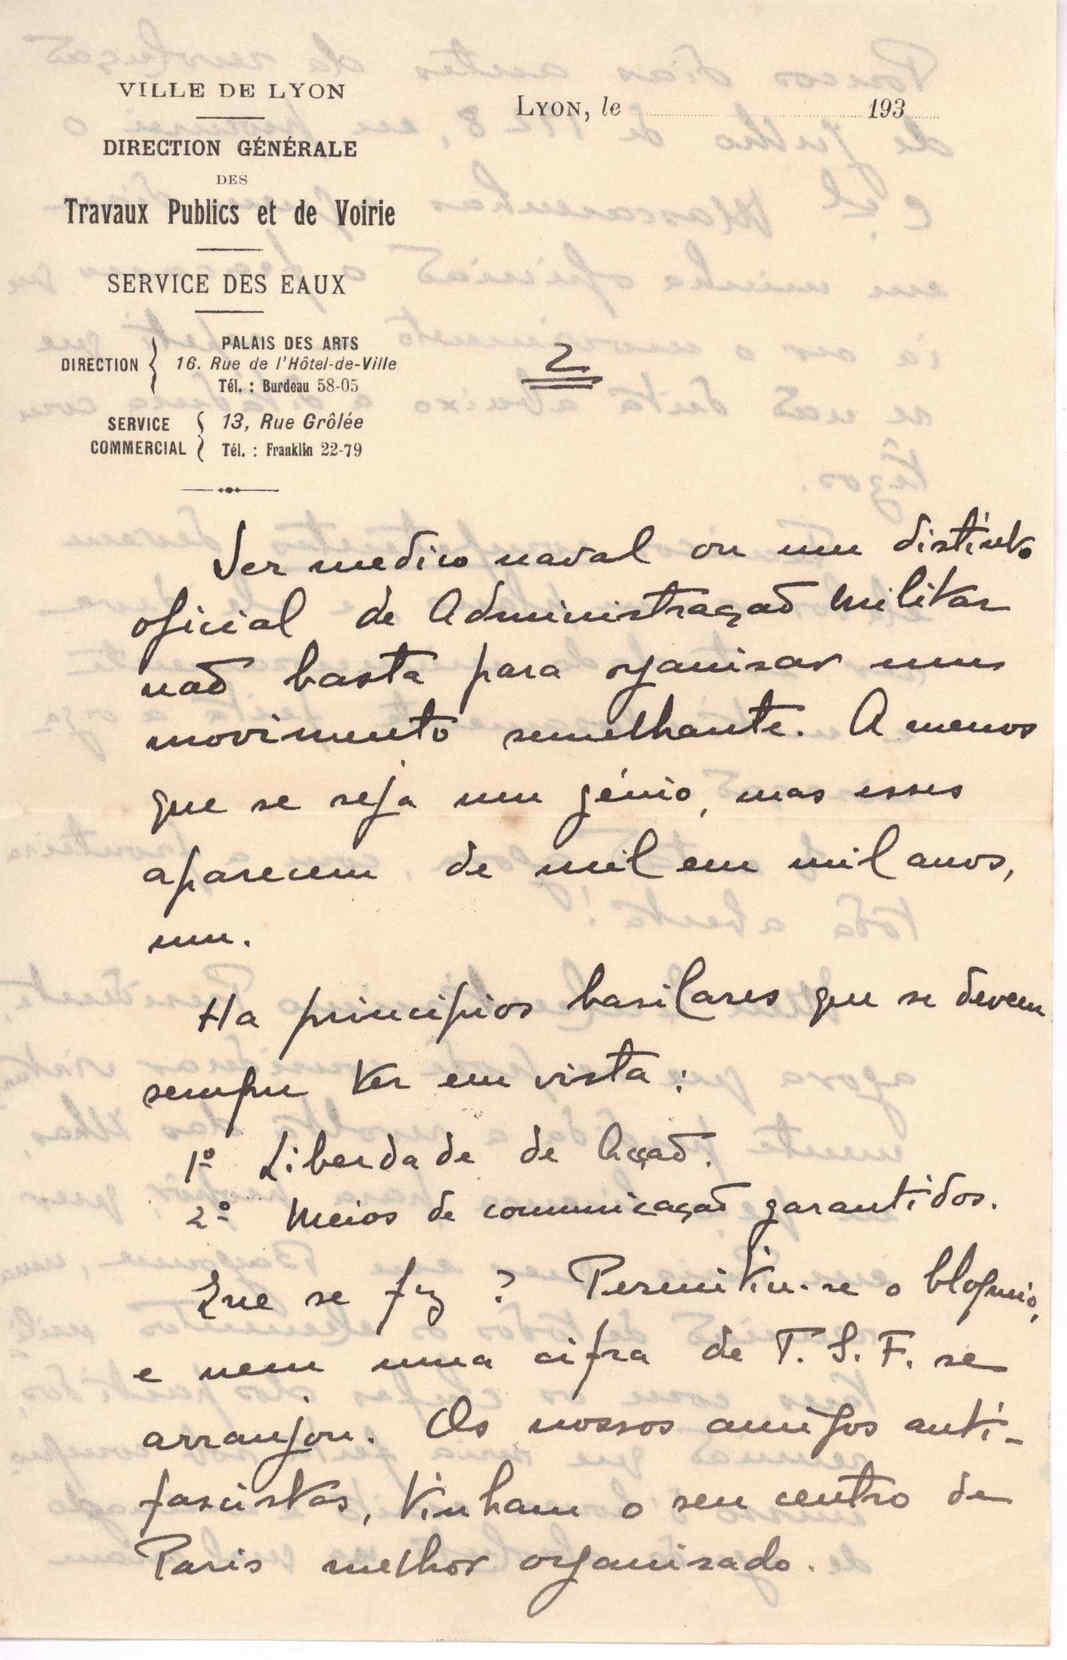 VILLE DE LYON
DIRECTION GÉNÉRALE
DES
Travaux Publics et de Voirie
SERVICE DES EAUX
DIRECTION { PALAIS DES ARTS
16. Rue de l'Hôtel-de-Ville
Tél. : Burdeau 58-05
SERVICE COMMERCIAL { 13, Rue Grôlée
Tél. : Franklin 22-79
LYON, le 193
2
Ser medico naval ou um distinto
oficial de Administração Militar
não basta para organisar um
movimento semelhante. A menos
que se seja um génio, mas esses
aparecem de mil em mil anos,
um.
Ha principios basilares que se devem
sempre ter em vista:
1º Liberdade de Acção.
2º Meios de comunicação garantidos.
Que se fez? Permitiu-se o bloqueio,
e nem uma cifra de T. S. F. se
arranjou. Os nossos amigos anti-
fascistas, tinham o seu centro de
Paris melhor organisado.